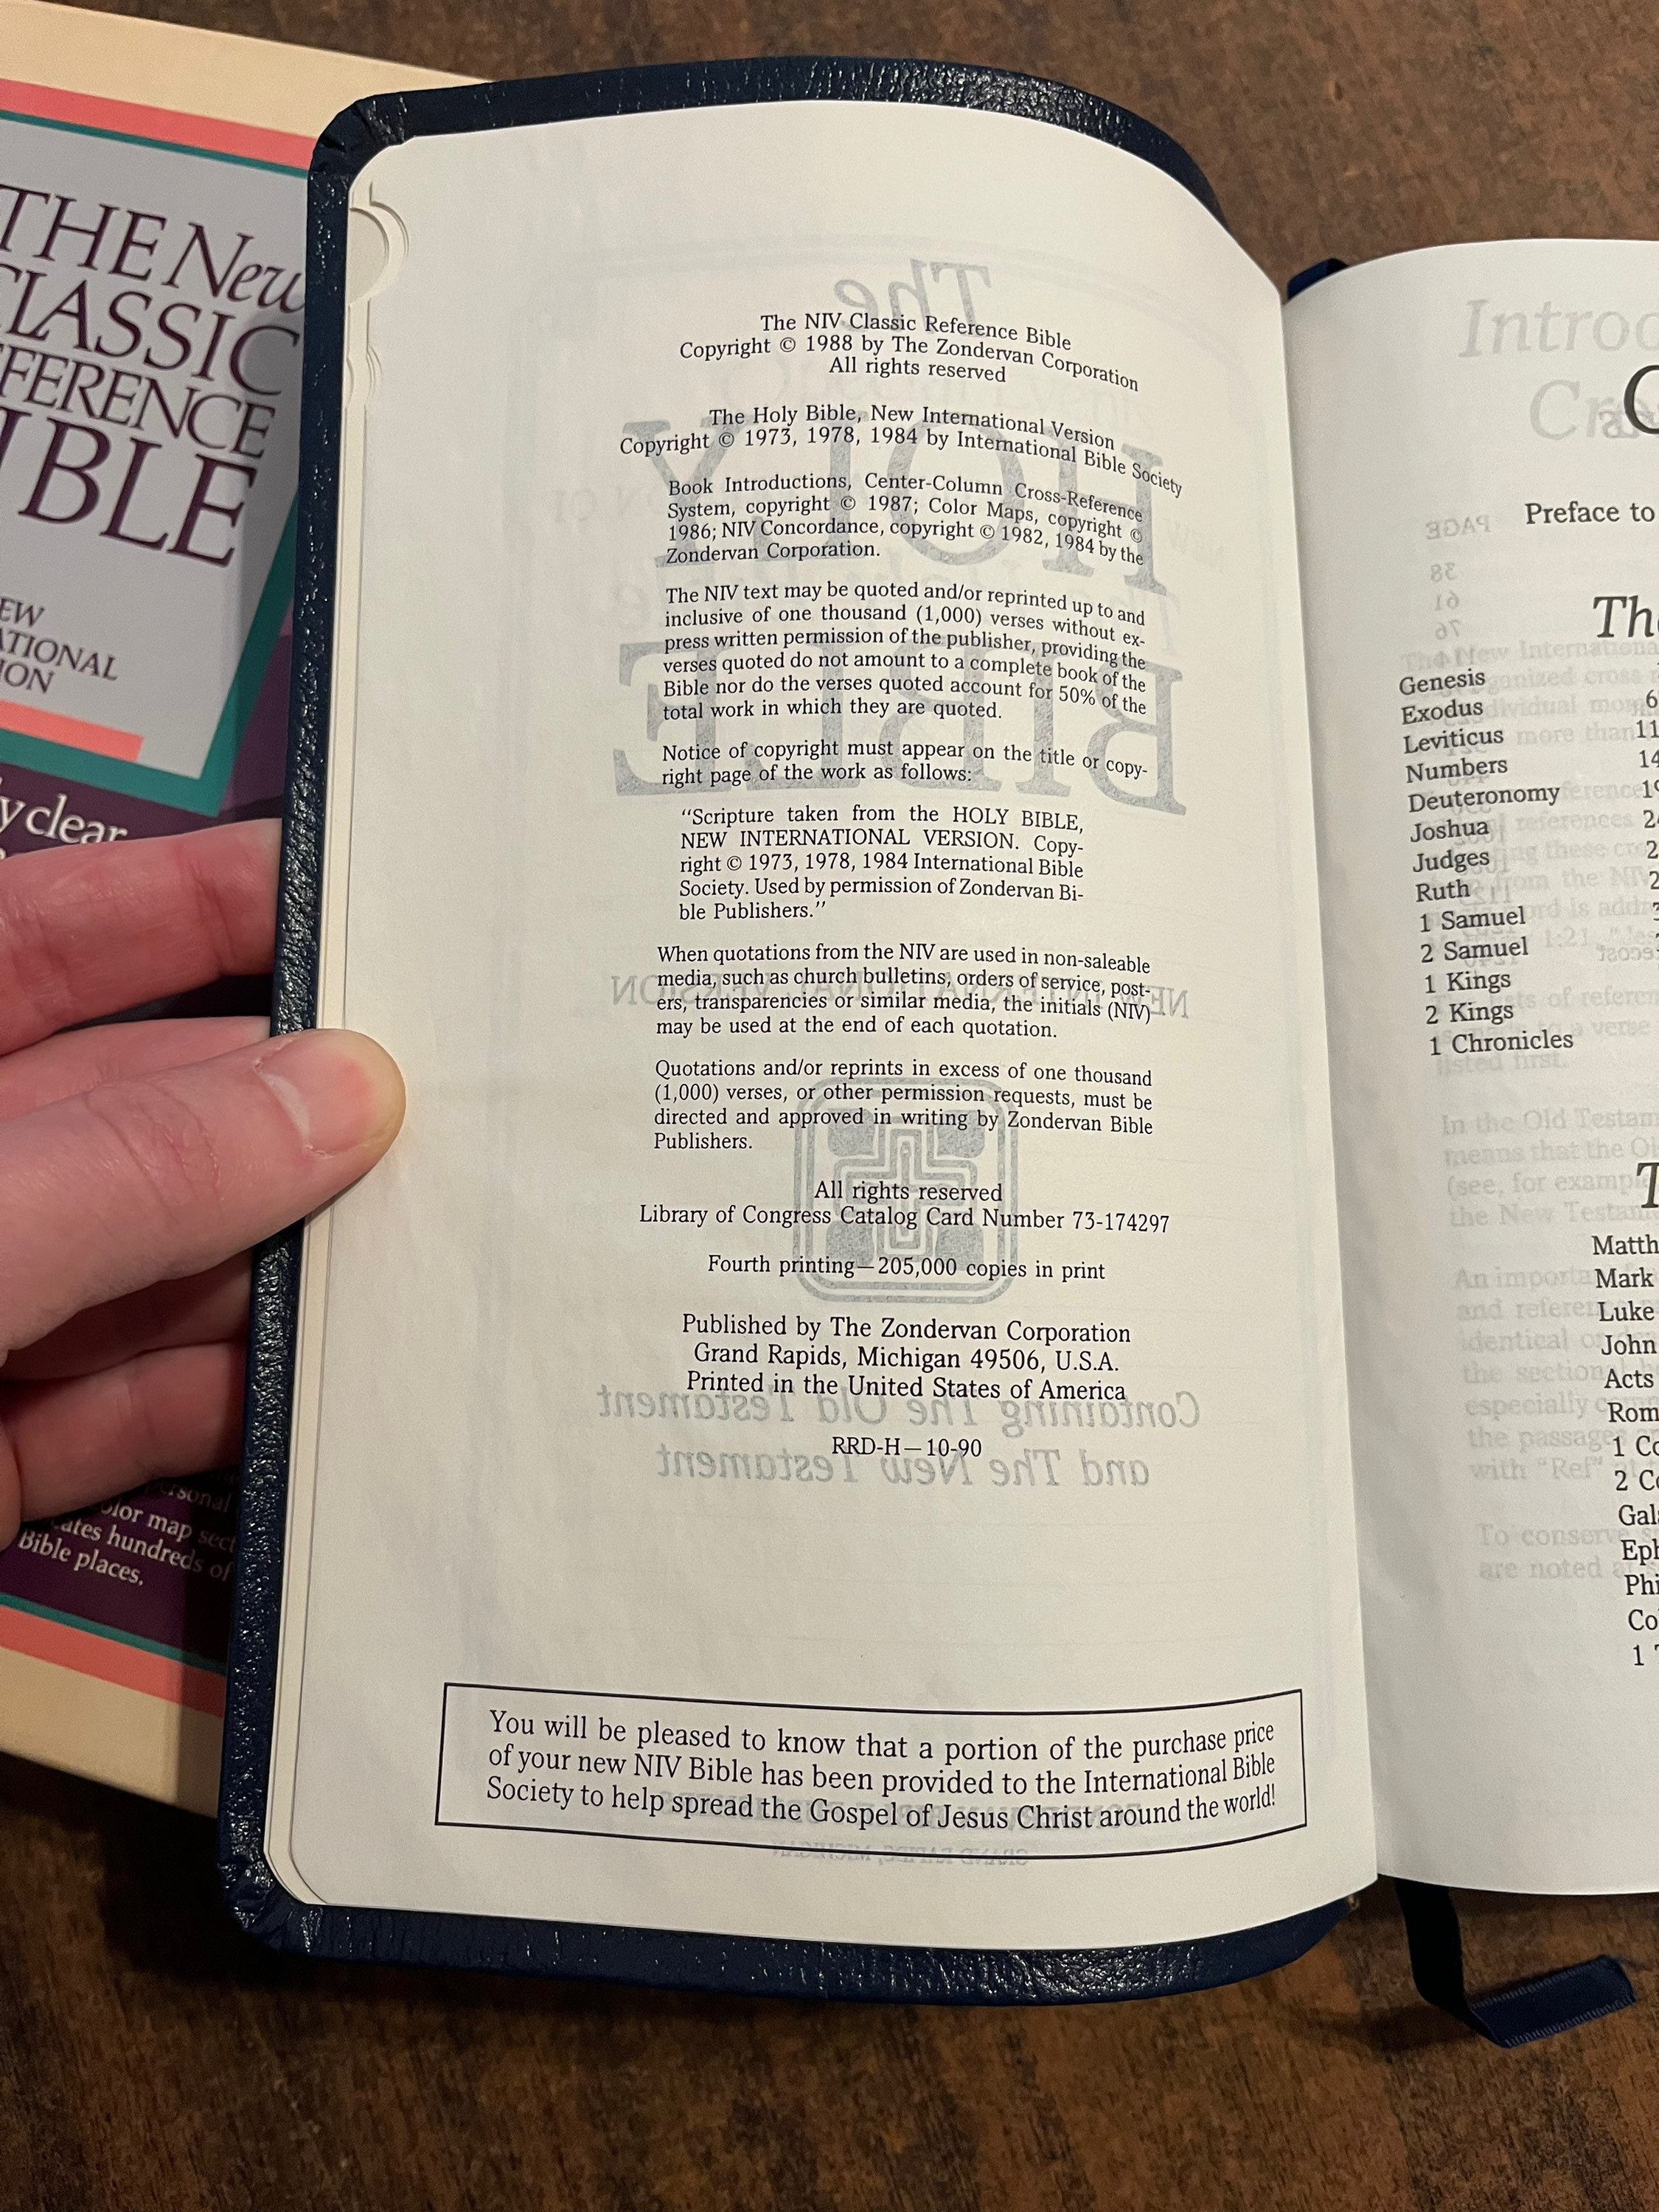 THE New
CLASSIC
BLE
y clear
color map sect
hundreds of
Bible places.
The NIV Classic Reference Bible
Copyright © 1988 by The Zondervan Corporation
All rights reserved
The Holy Bible, New International Version
Copyright © 1973, 1978, 1984 by International Bible Society
Book Introductions, Center-Column Cross-Reference
System, copyright © 1987; Color Maps, copyright ©
1986; NIV Concordance, copyright © 1982, 1984 by the
Zondervan Corporation.
The NIV text may be quoted and/or reprinted up to and
inclusive of one thousand (1,000) verses without ex-
press written permission of the publisher, providing the
verses quoted do not amount to a complete book of the
Bible nor do the verses quoted account for 50% of the
total work in which they are quoted.
Notice of copyright must appear on the title or copy-
right page of the work as follows:
“Scripture taken from the HOLY BIBLE,
NEW INTERNATIONAL VERSION. Copy-
right © 1973, 1978, 1984 International Bible
Society. Used by permission of Zondervan Bi-
ble Publishers.”
When quotations from the NIV are used in non-saleable
media, such as church bulletins, orders of service, post-
ers, transparencies or similar media, the initials (NIV)
may be used at the end of each quotation.
Quotations and/or reprints in excess of one thousand
(1,000) verses, or other permission requests, must be
directed and approved in writing by Zondervan Bible
Publishers.
All rights reserved
Library of Congress Catalog Card Number 73-174297
Fourth printing—205,000 copies in print
Published by The Zondervan Corporation
Grand Rapids, Michigan 49506, U.S.A.
Printed in the United States of America
RRD-H—10-90
You will be pleased to know that a portion of the purchase price
of your new NIV Bible has been provided to the International Bible
Society to help spread the Gospel of Jesus Christ around the world!
Preface to
Genesis
Exodus
Leviticus
Numbers
Deuteronomy
Joshua
Judges
Ruth
1 Samuel
2 Samuel
1 Kings
2 Kings
1 Chronicles
Matth
Mark
Luke
John
Acts
Rom
1 Co
2 Co
Gal
Eph
Phi
Co
1